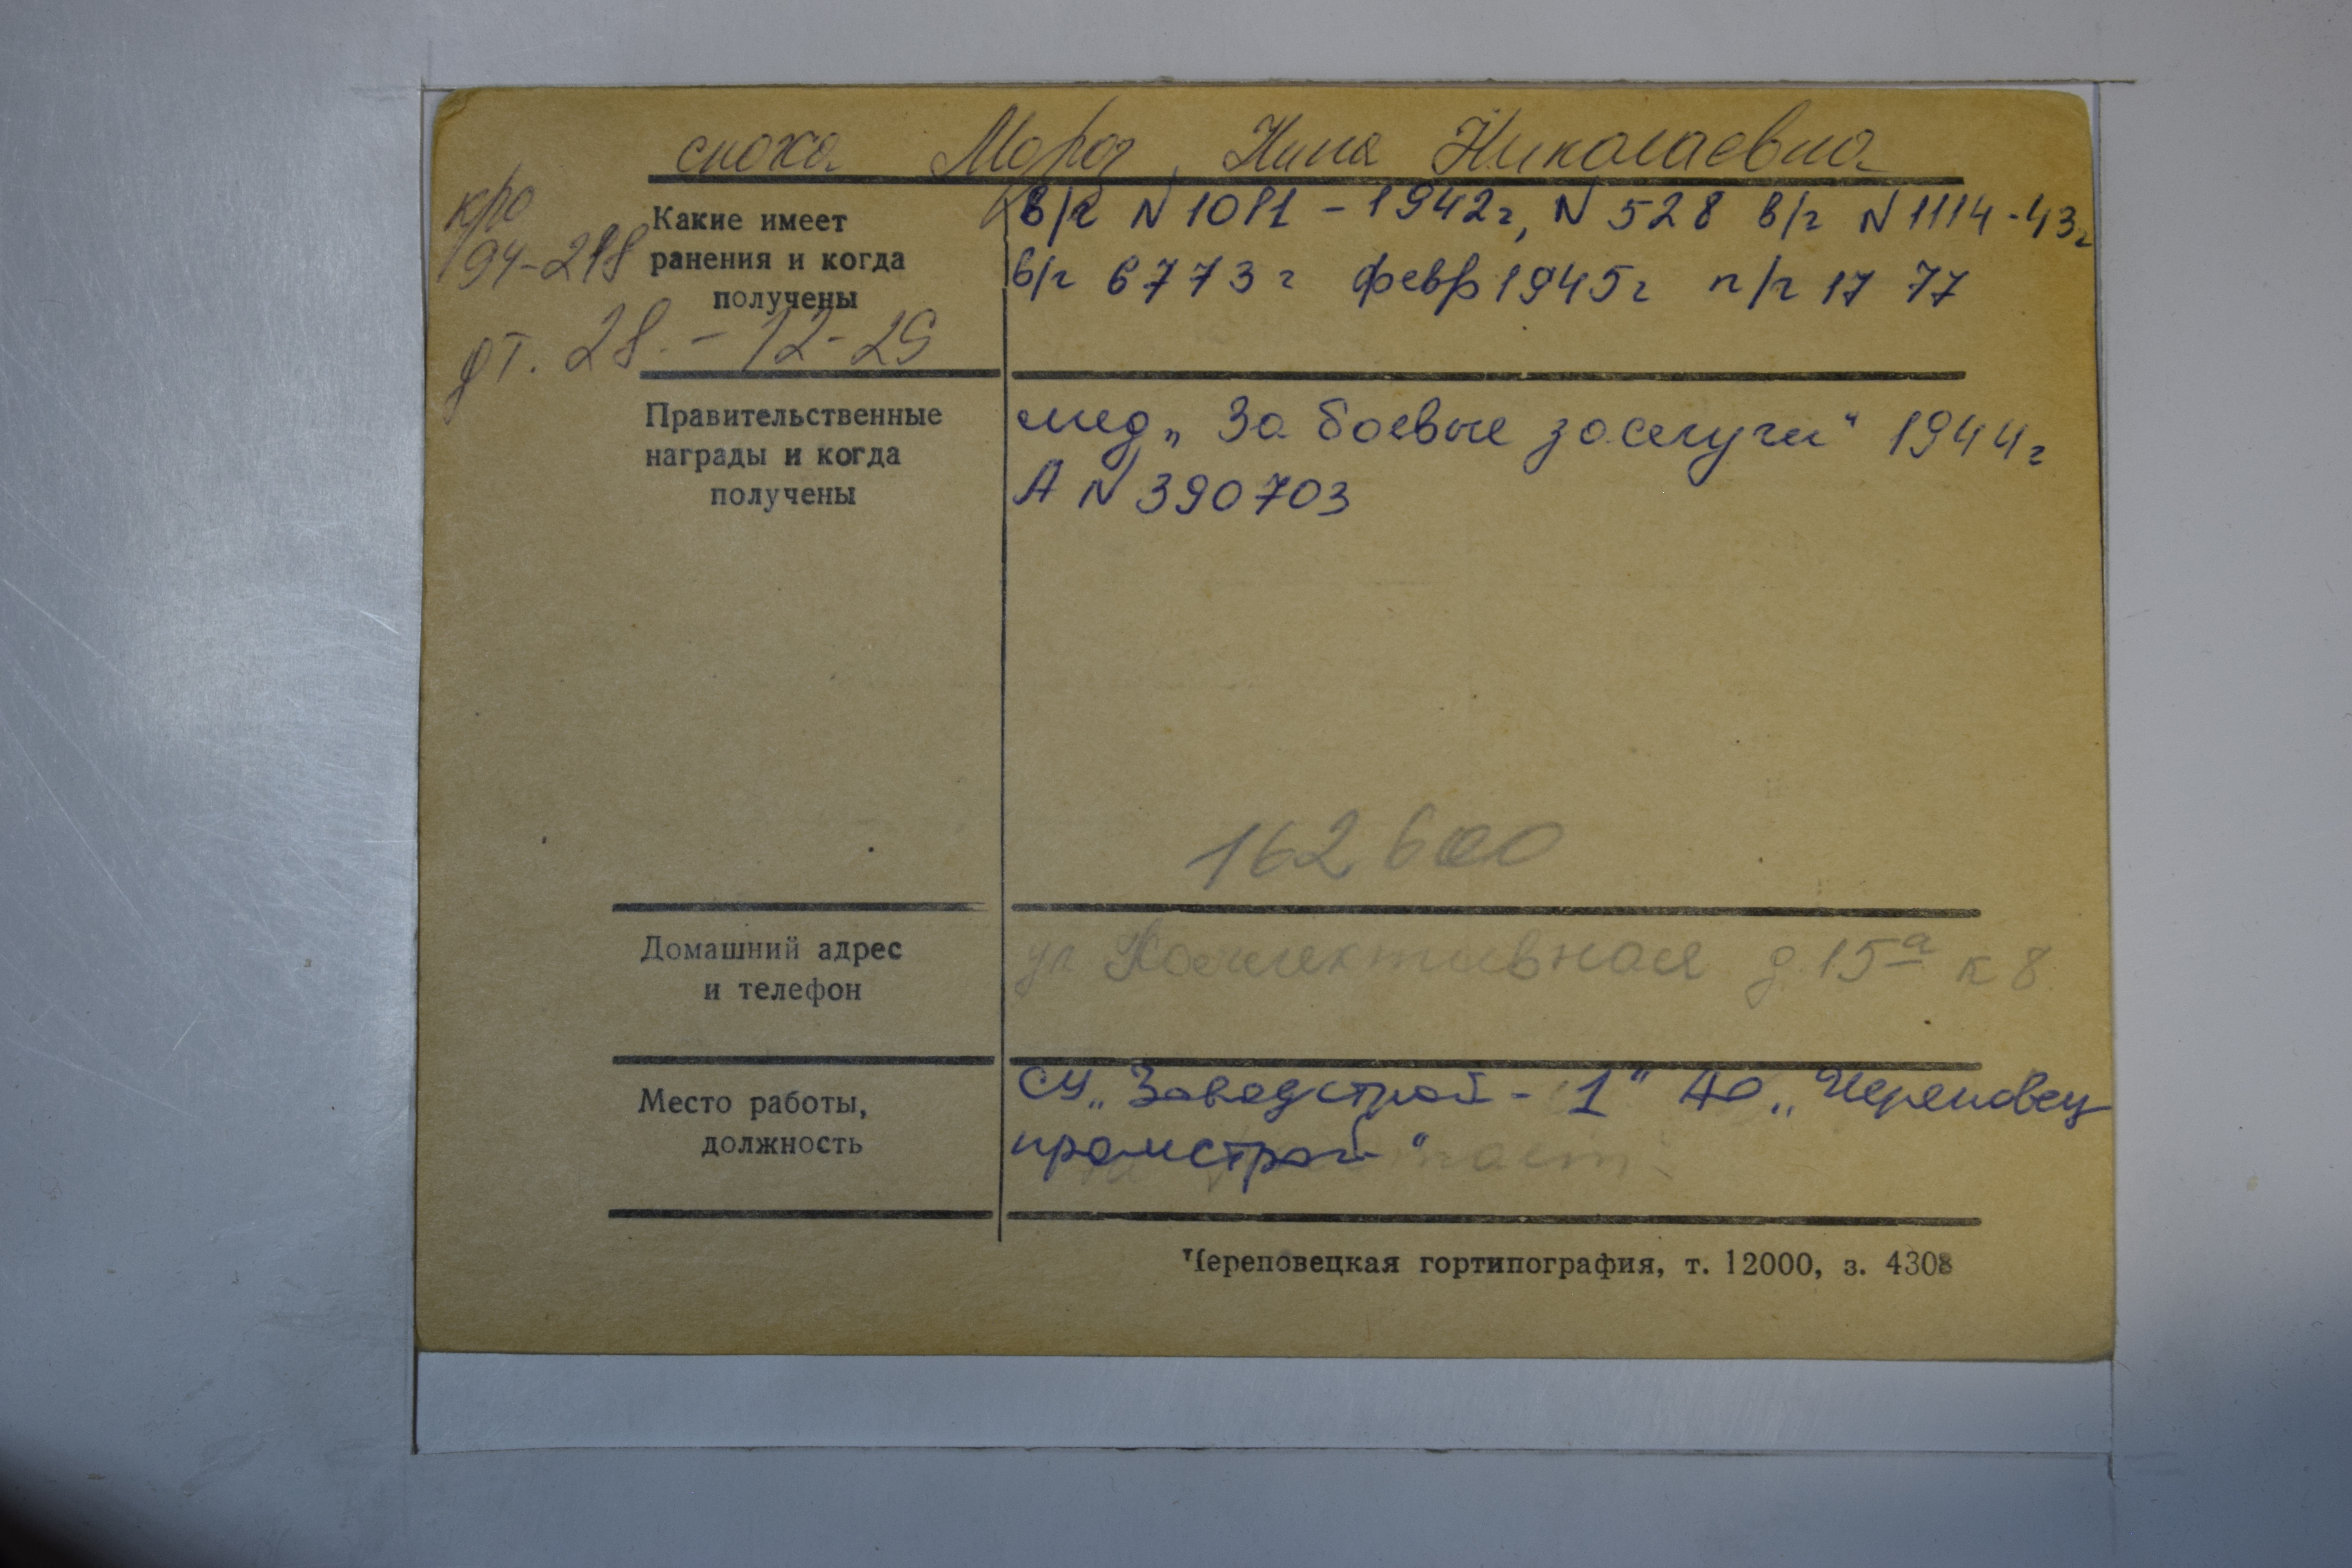 сноха Мороз, Нина Николаевна
кро
194-218
дт. 28. - 12-29
Какие имеет
ранения и когда
получены
в/г N 1081 - 1942г, N 528 в/г N 1114-43г
в/г 6773 г февр 1945г п/г 17 77
Правительственные
награды и когда
получены
мед „За боевые заслуги" 1944г
А N 390703
162600
Домашний адрес
и телефон
ул Коллективная д.15а к 8.
Место работы,
должность
СУ „Заводстрой - 1" АО „Череповец
промстрой"
Череповецкая гортипография, т. 12000, з. 4308